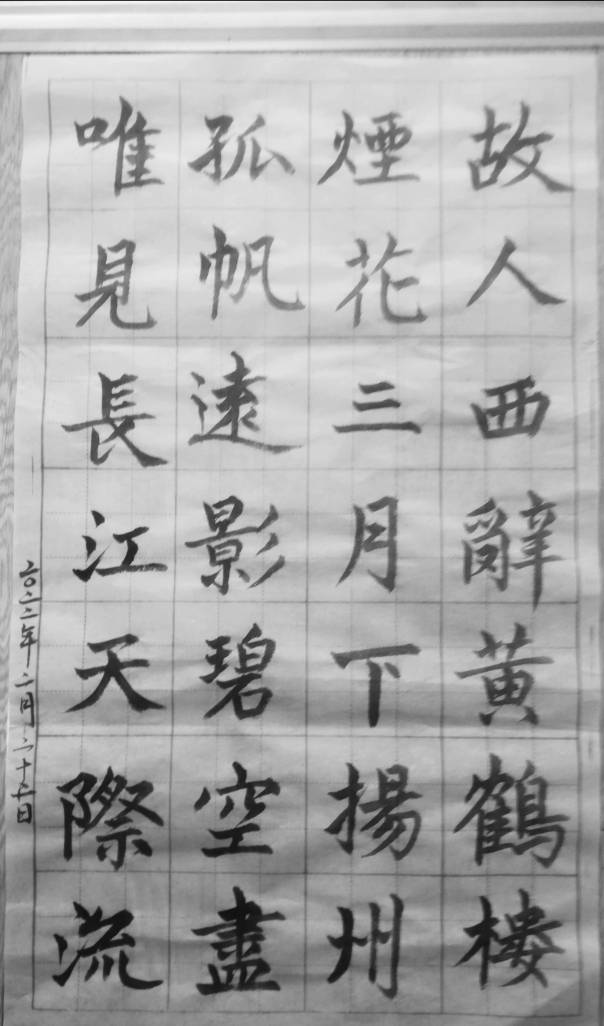 故人西辭黃鶴樓
煙花三月下揚州
孤帆遠影碧空盡
唯見長江天際流
二〇二二年二月二十二日